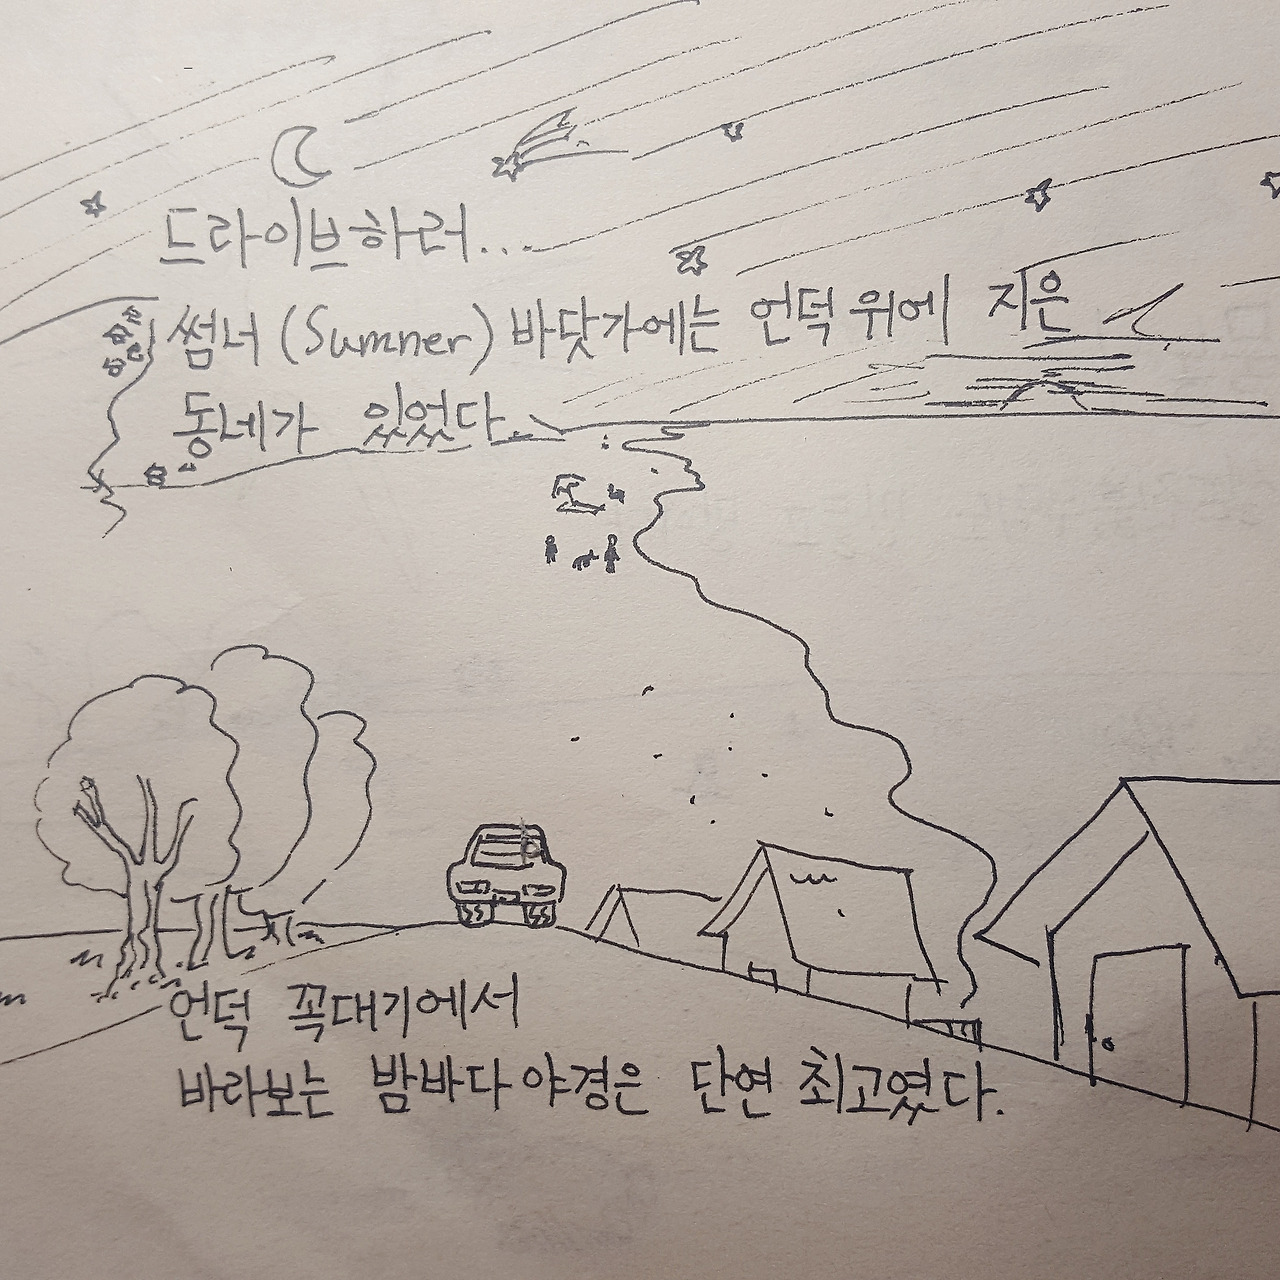 드라이브하러...
썸너 (Sumner) 바닷가에는 언덕 위에 지은
동네가 있었다.
언덕 꼭대기에서
바라보는 밤바다 야경은 단연 최고였다.